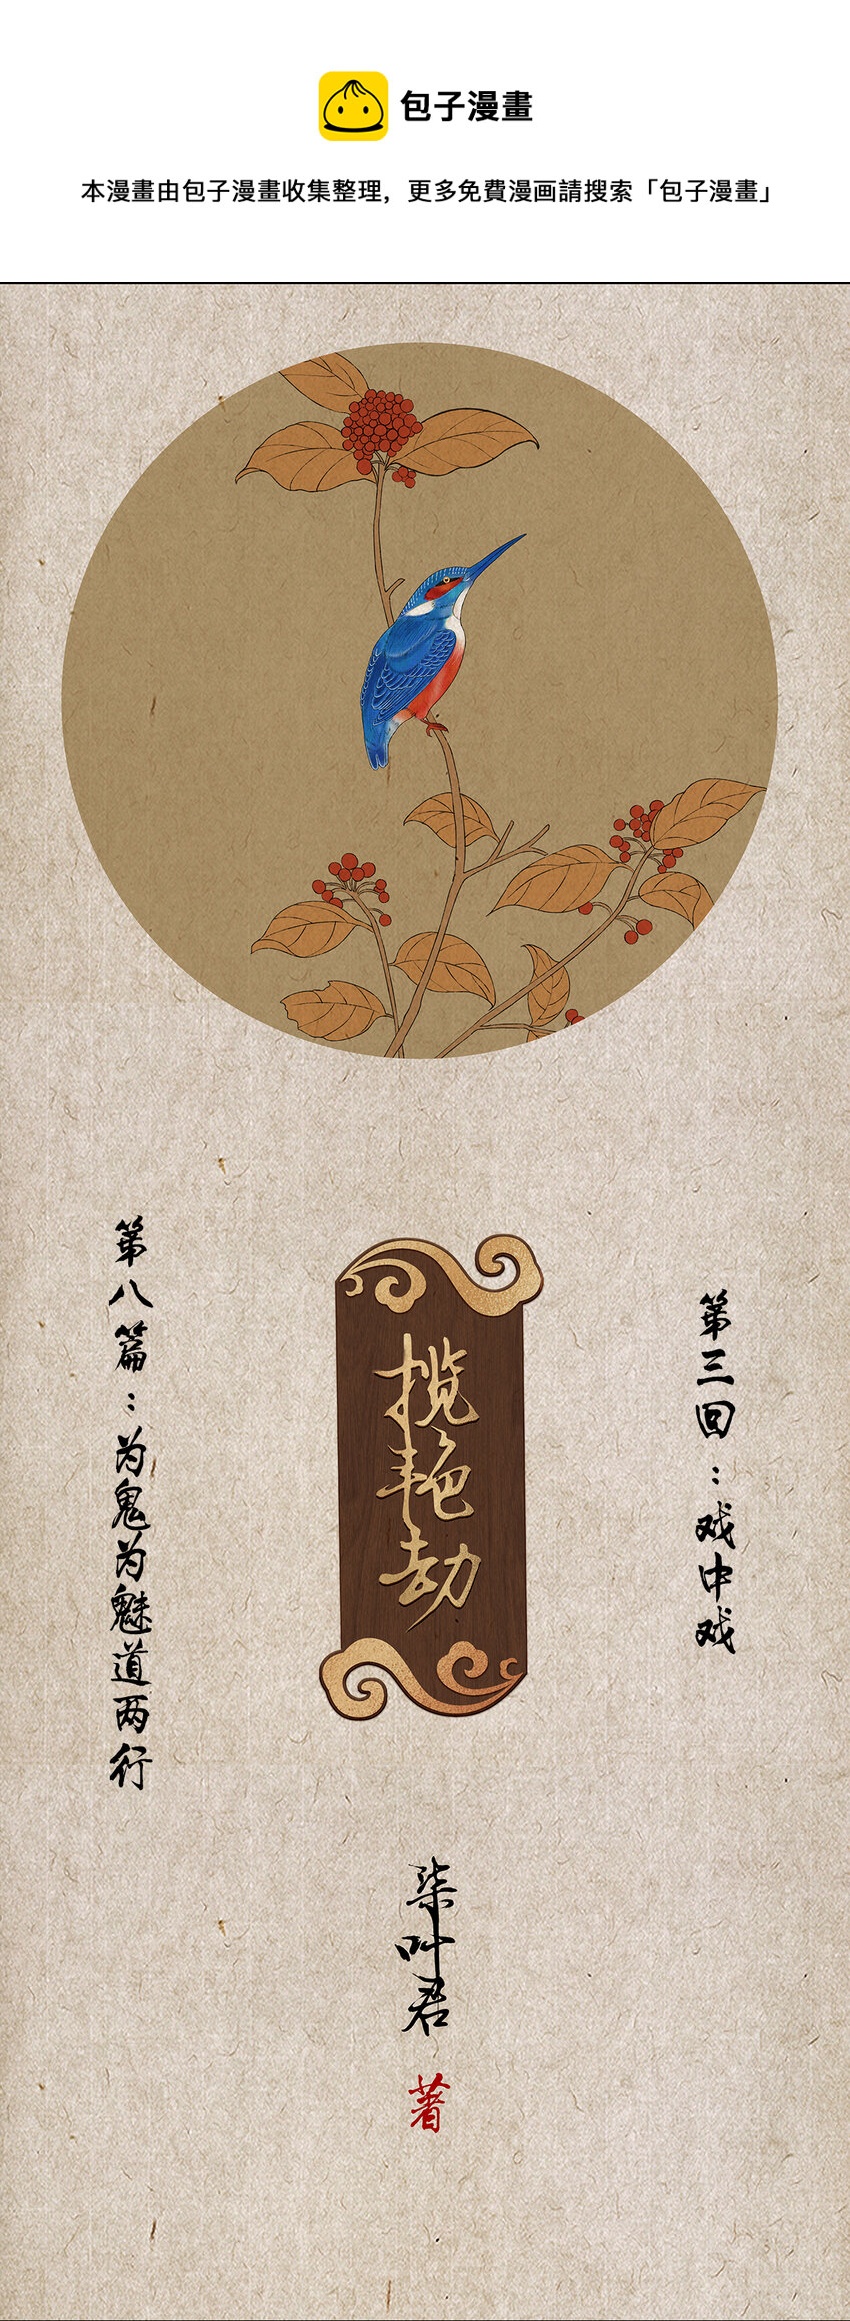 包子漫畫
本漫畫由包子漫畫收集整理，更多免費漫画請搜索「包子漫畫」
第三回：戏中戏
揽艳劫
第八篇：为鬼为魅道两行
柒叶君
著